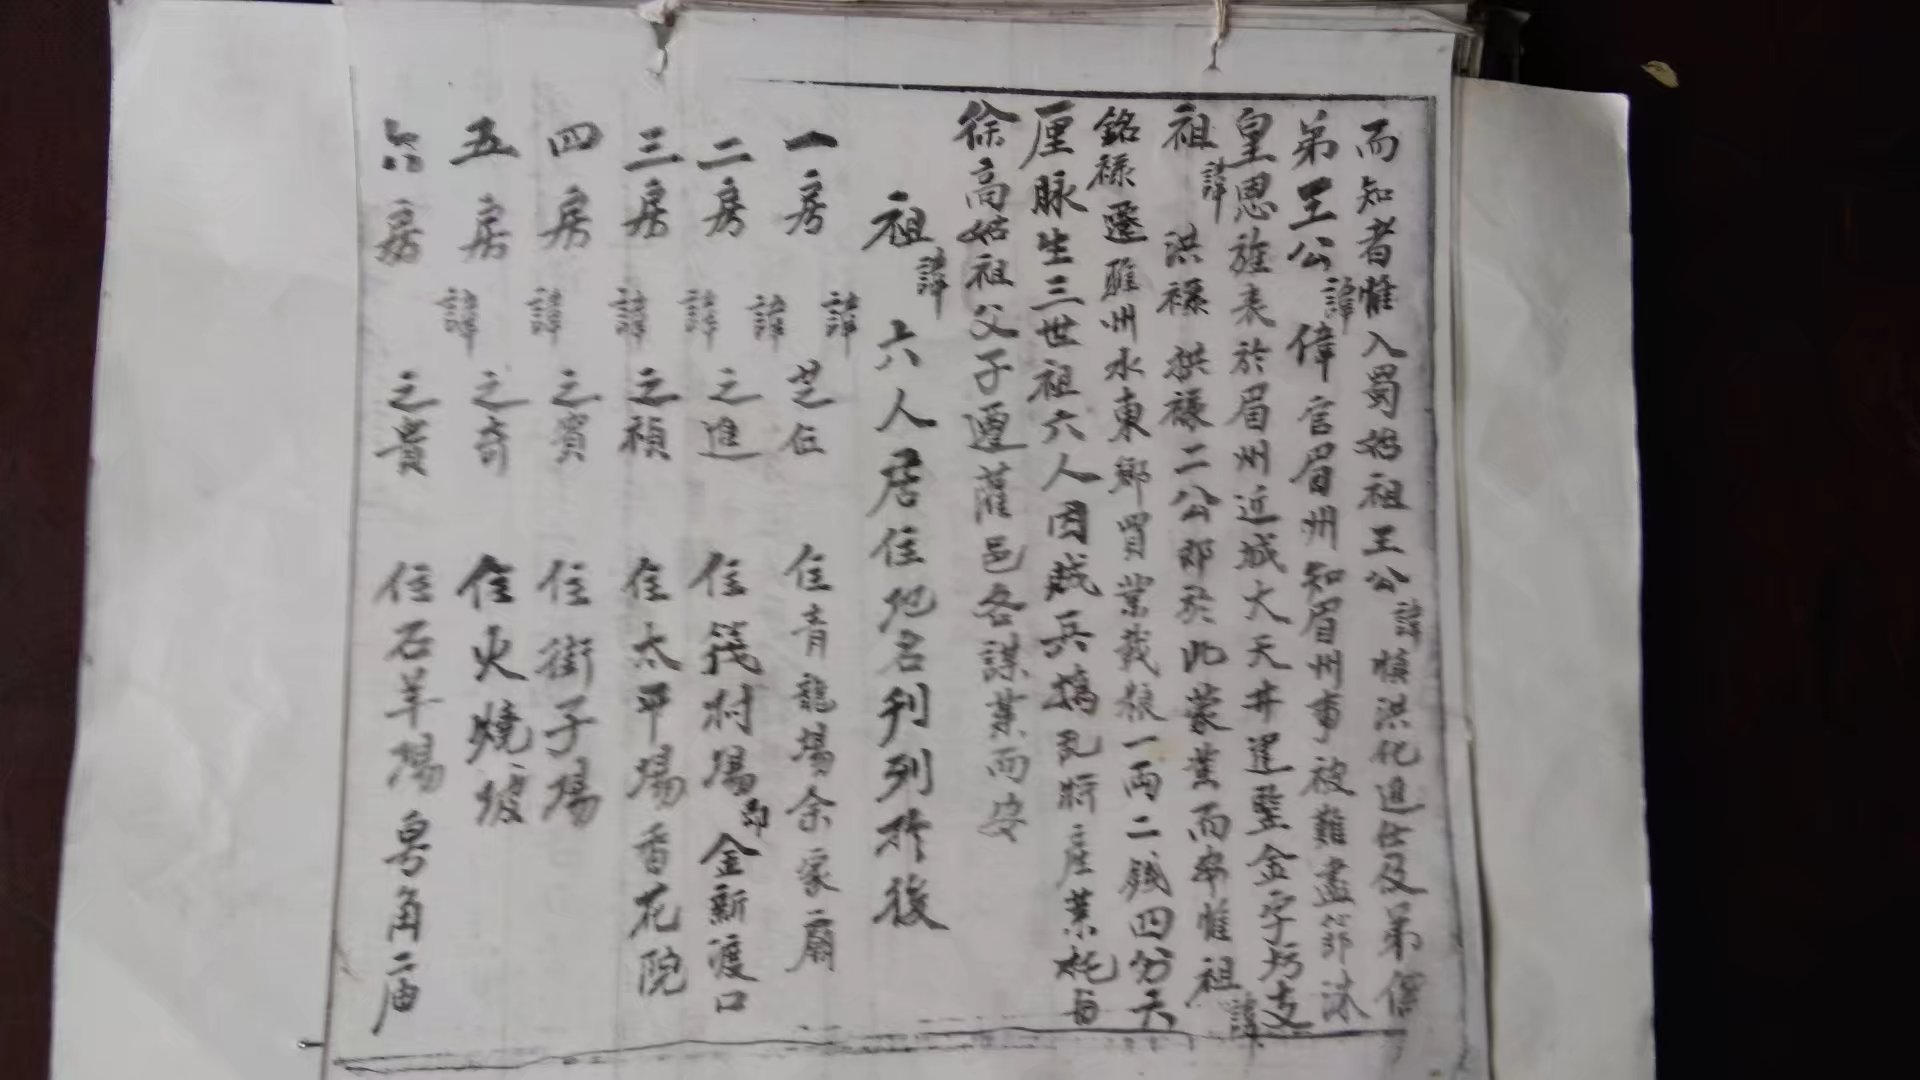 而知者惟入蜀始祖王公諱慎洪化進仕及弟保
弟王公諱偉官眉州知眉州事被難盡節沐
皇恩旌表於眉州近城大天井建豎金字坊支
祖諱洪祿拱祿二公即於此蒙業而卒惟祖諱
銘祿遷雅州水東鄉買業栽粮一両二銭四分六
厘脉生三世祖六人因賊兵搞乱將産業托与
徐高姑祖父子遷蘆邑各謀業而安
祖諱六人居住地名刊列於後
一房諱芝位住青龍場余家廟
二房諱之進住筏村場即金新渡口
三房諱之禎住太平場香花院
四房諱之賓住街子場
五房諱之奇住火燒坡
六房諱之貴住石羊場皂角庙